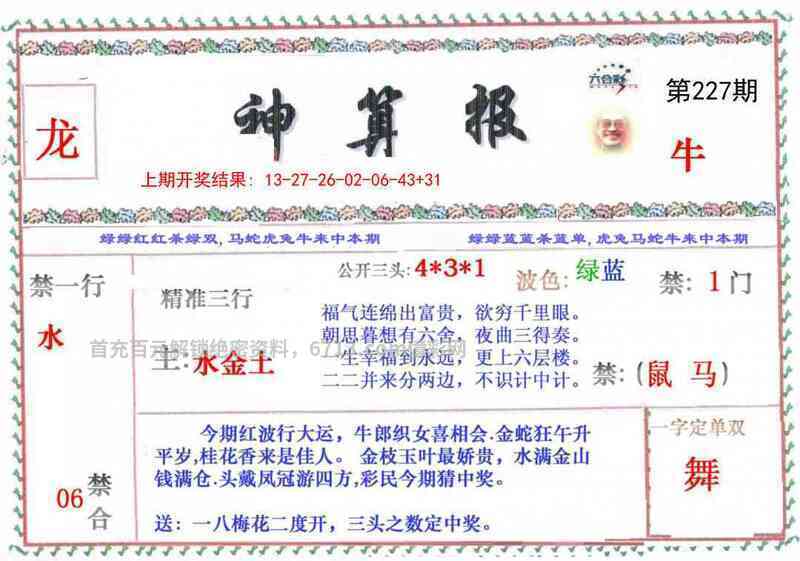 六合彩
第227期
龙
神算报
牛
上期开奖结果：13-27-26-02-06-43+31
绿绿红红杀绿双,马蛇虎兔牛来中本期
绿绿蓝蓝杀蓝单,虎兔马蛇牛来中本期
禁一行
水
06
禁合
精准三行
主:水金土
公开三头:4*3*1
波色:绿蓝
禁:1门
福气连绵出富贵，欲穷千里眼。
朝思暮想有六合，夜曲三得奏。
一生幸福到永远，更上六层楼。
二二并来分两边，不识计中计。
禁:(鼠 马)
首充百元解锁绝密资料，
今期红波行大运，牛郎织女喜相会.金蛇狂午升
平岁,桂花香来是佳人。 金枝玉叶最娇贵，水满金山
钱满仓.头戴凤冠游四方,彩民今期猜中奖。
送：一八梅花二度开，三头之数定中奖。
一字定单双
舞